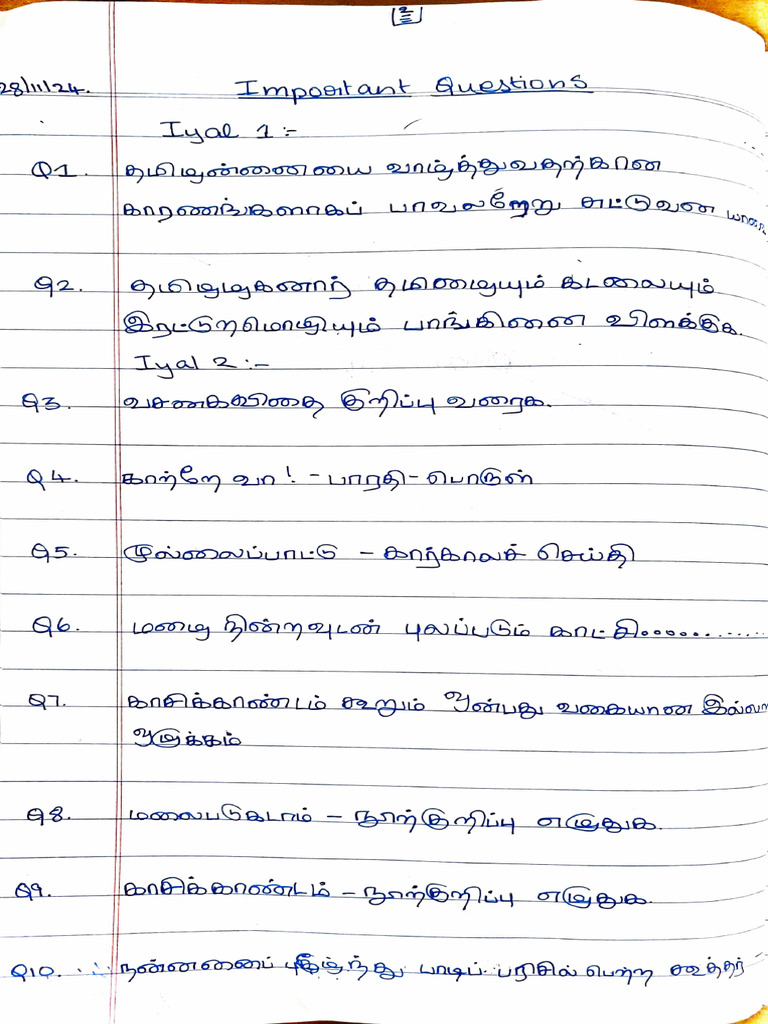 2
28/11/24.
Important Questions
Iyal 1 :-
Q1. தமிழன்னையை வாழ்த்துவதற்கான
காரணங்களாகப் பாவலரேறு சுட்டுவன யாவை
Q2. தமிழழகனார் தமிழையும் கடலையும்
இரட்டுறமொழியும் பாங்கினை விளக்குக.
Iyal 2 :-
Q3. வசனகவிதை குறிப்பு வரைக.
Q4. காற்றே வா! - பாரதி - பொருள்
Q5. முல்லைப்பாட்டு - கார்காலச் செய்தி
Q6. மழை நின்றவுடன் புலப்படும் காட்சி..............
Q7. காசிக்காண்டம் கூறும் ஒன்பது வகையான இல்லற
ஒழுக்கம்
Q8. மலைபடுகடாம் - நூற்குறிப்பு எழுதுக.
Q9. காசிக்காண்டம் - நூற்குறிப்பு எழுதுக.
Q10. நன்னனைப் புகழ்ந்து பாடிப் பரிசில் பெற்ற கூத்தர்